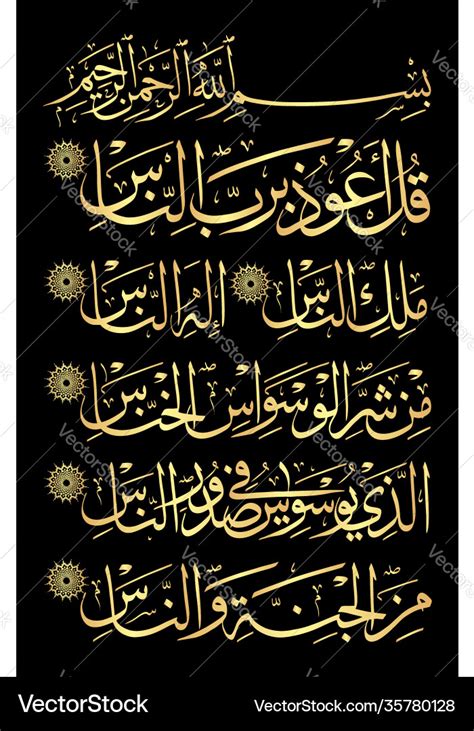 بِسْمِ اللَّهِ الرَّحْمَنِ الرَّحِيمِ
قُلْ أَعُوذُ بِرَبِّ النَّاسِ
مَلِكِ النَّاسِ إِلَهِ النَّاسِ
مِنْ شَرِّ الْوَسْوَاسِ الْخَنَّاسِ
الَّذِي يُوَسْوِسُ فِي صُدُورِ النَّاسِ
مِنَ الْجِنَّةِ وَالنَّاسِ
VectorStock®
VectorStock.com/35780128